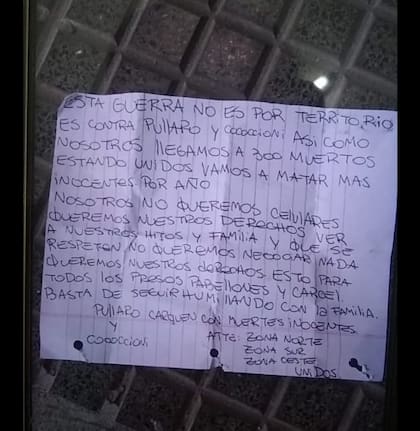 ESTA GUERRA NO ES POR TERRITORIO
ES CONTRA PULLARO Y COCOCCIONI ASI COMO
NOSOTROS LLEGAMOS A 300 MUERTOS
ESTANDO UNIDOS VAMOS A MATAR MAS
INOCENTES POR AÑO
NOSOTROS NO QUEREMOS CELULARES
QUEREMOS NUESTROS DERECHOS VER
A NUESTROS HIJOS Y FAMILIA Y QUE SE
RESPETEN NO QUEREMOS NEGOCIAR NADA
QUEREMOS NUESTROS DERECHOS ESTO PARA
TODOS LOS PRESOS PABELLONES Y CARCEL.
BASTA DE SEGUIR HUMILLANDO CON LA FAMILIA.
PULLARO CARGUEN CON MUERTES INOCENTES.
Y
COCOCCIONI
ATTE: ZONA NORTE
ZONA SUR
ZONA OESTE
UNIDOS